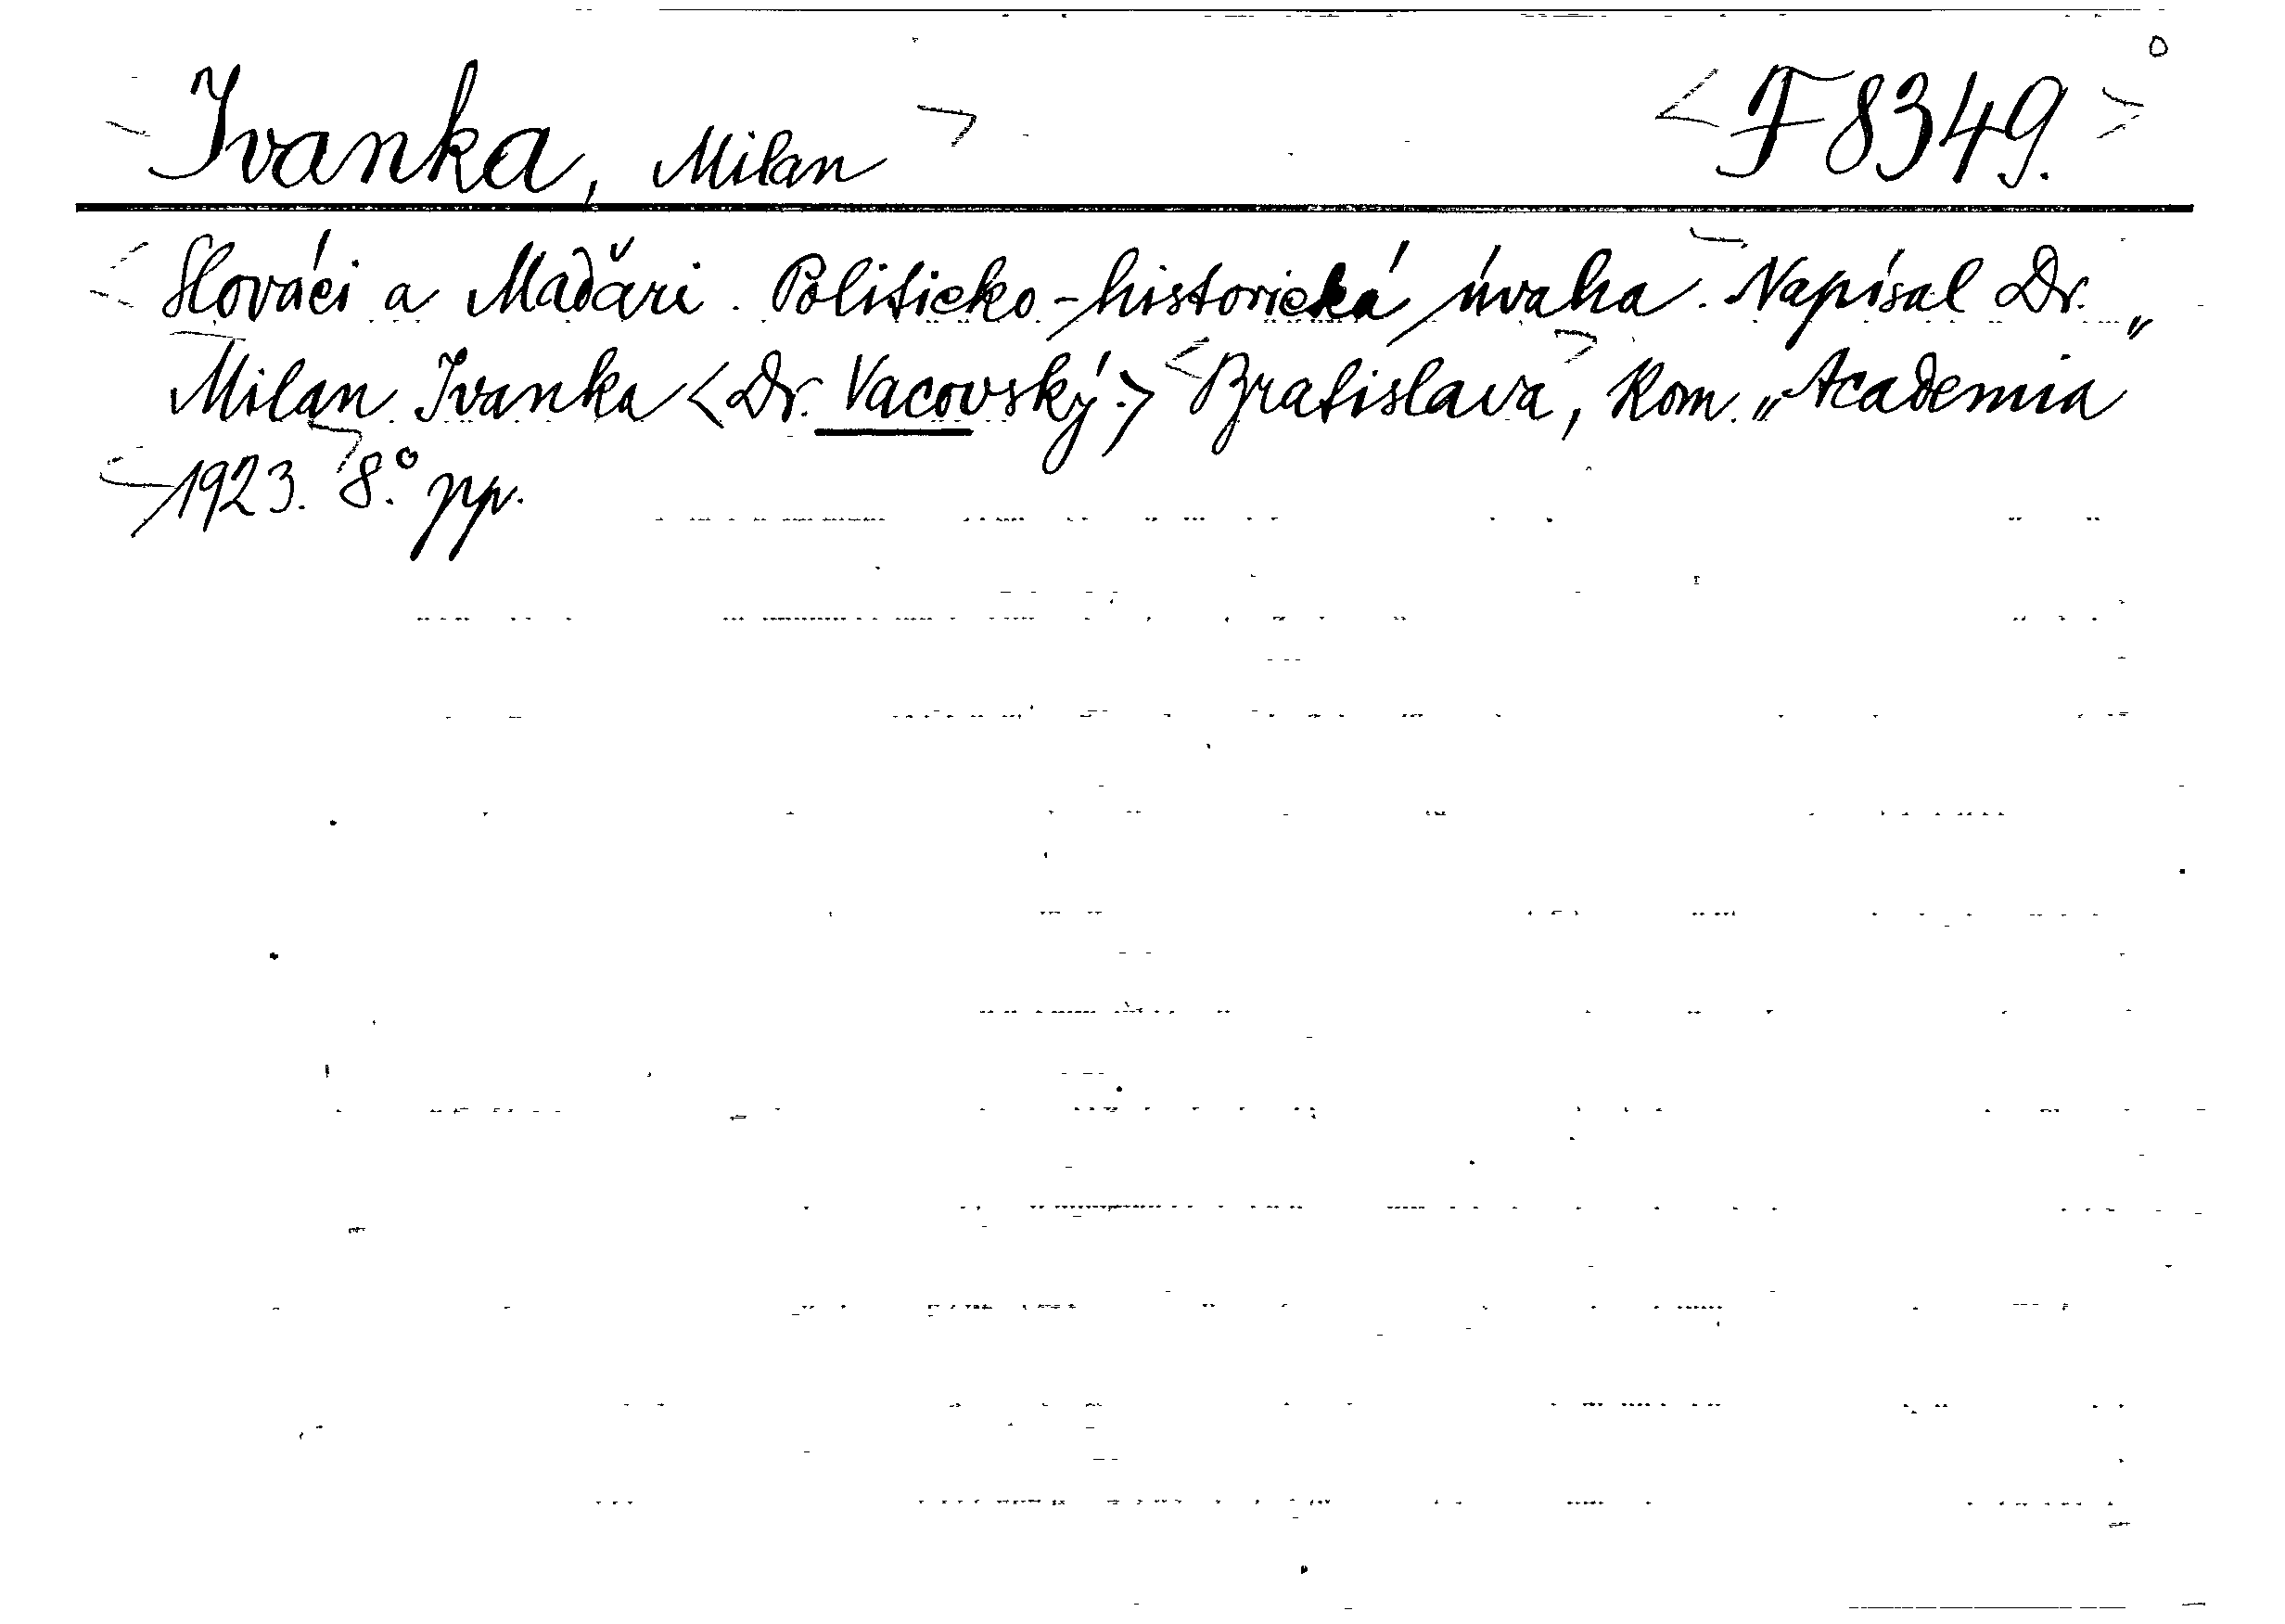 Ivanka, Milan <F 8349.>
Slováci a Maďari. Politicko-historická úvaha. Napísal Dr.
Milan Ivanka <Dr. Vacovský.> Bratislava, Kom. „Academia"
1923. 8.° pp.